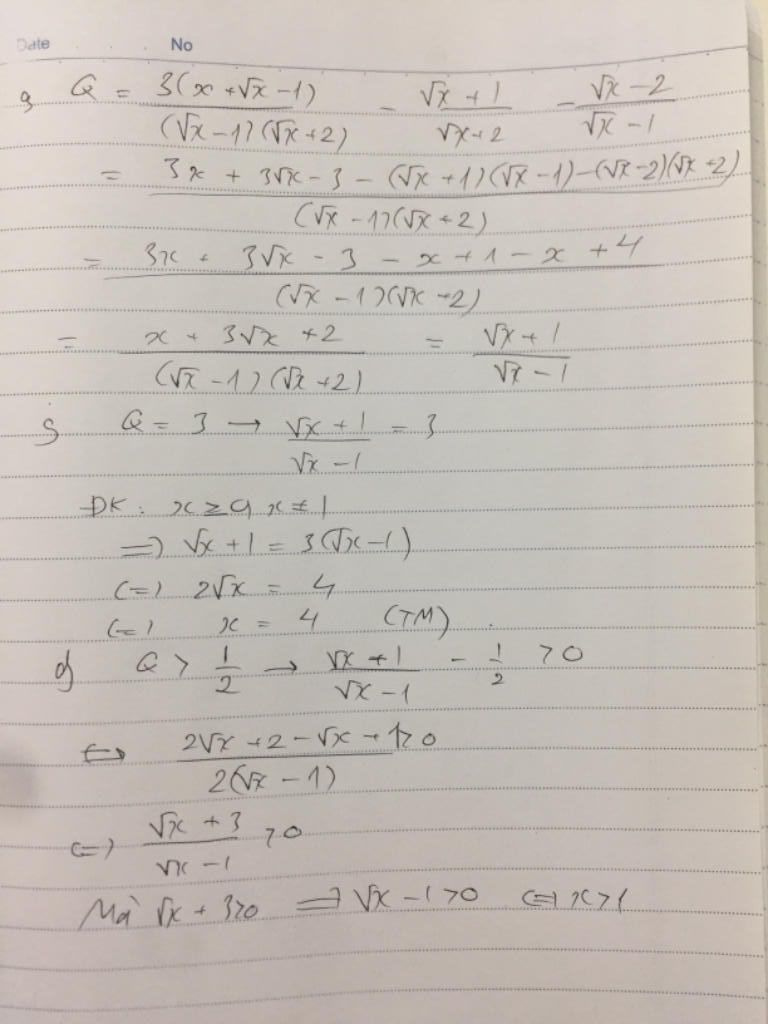 Date No
a) Q = 3(x + √x - 1) / (√x - 1)(√x + 2) - √x + 1 / √x + 2 - √x - 2 / √x - 1
= 3x + 3√x - 3 - (√x + 1)(√x - 1) - (√x - 2)(√x + 2) / (√x - 1)(√x + 2)
= 3x + 3√x - 3 - x + 1 - x + 4 / (√x - 1)(√x + 2)
= x + 3√x + 2 / (√x - 1)(√x + 2) = √x + 1 / √x - 1
Q = 3 → √x + 1 / √x - 1 = 3
ĐK: x ≥ 0, x ≠ 1
=> √x + 1 = 3(√x - 1)
<=> 2√x = 4
<=> x = 4 (TM)
Q > 1/2 → √x + 1 / √x - 1 - 1/2 > 0
<=> 2√x + 2 - √x + 1 / 2(√x - 1) > 0
<=> √x + 3 / √x - 1 > 0
Mà √x + 3 > 0 => √x - 1 > 0 <=> x > 1